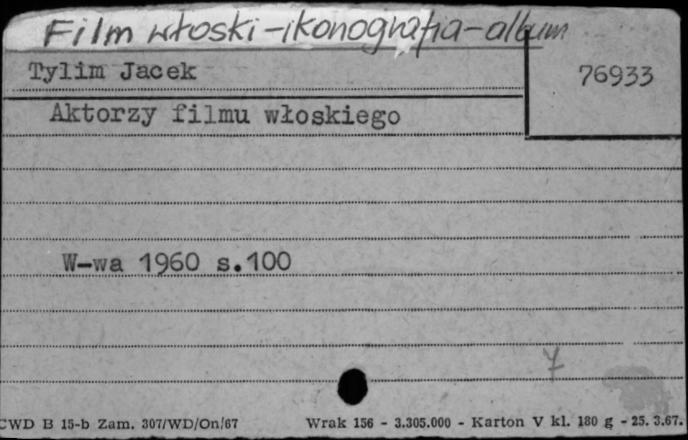 Film włoski-ikonografia-album
Tylim Jacek
76933
Aktorzy filmu włoskiego
W-wa 1960 s.100
7
CWD B 15-b Zam. 307/WD/On/67 Wrak 156 - 3.305.000 - Karton V kl. 180 g - 25.3.67.